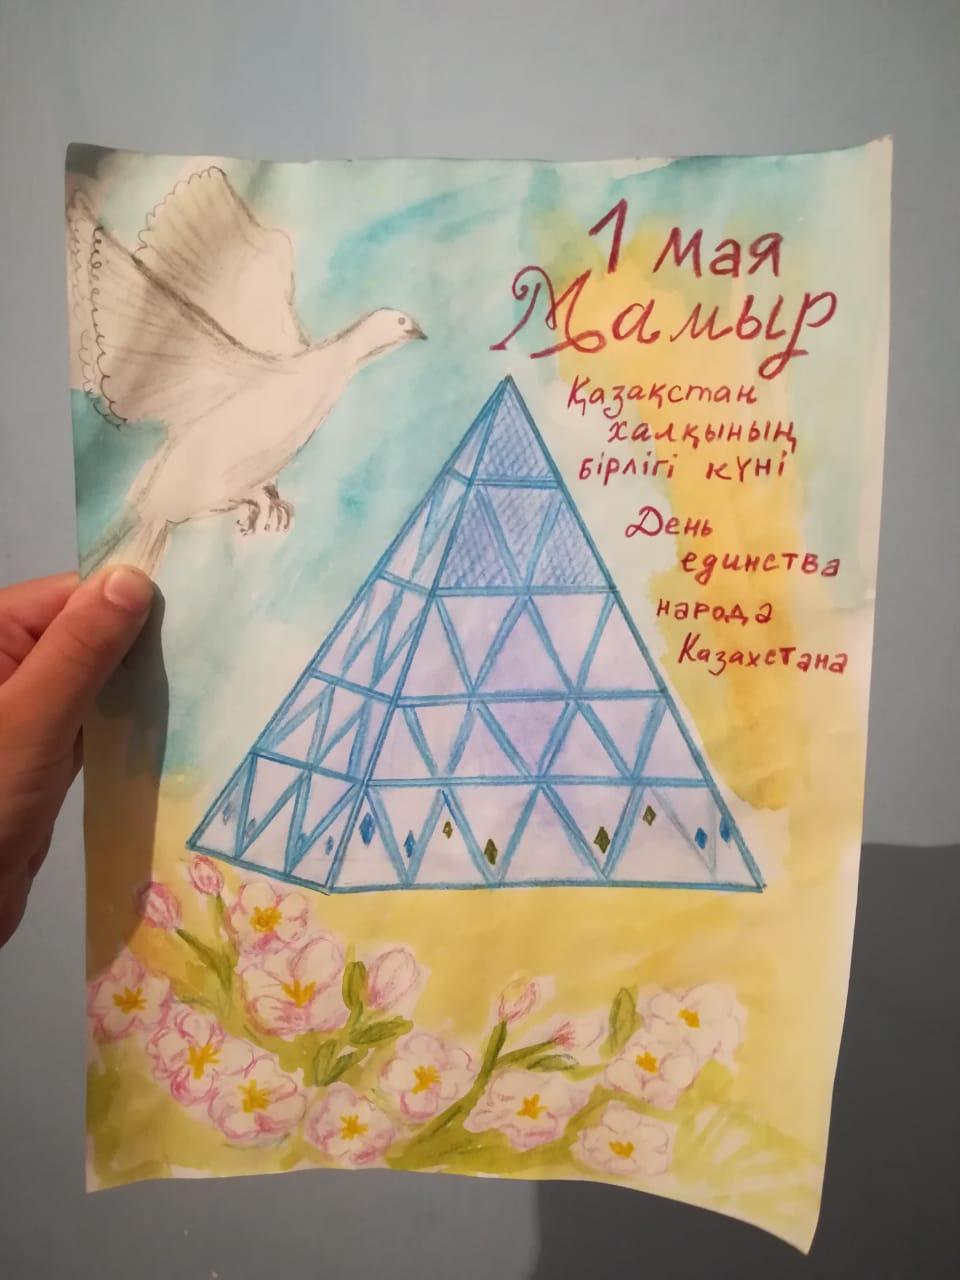 1 мая
Мамыр
Қазақстан
халқының
бірлігі күні
День
единства
народа
Казахстана